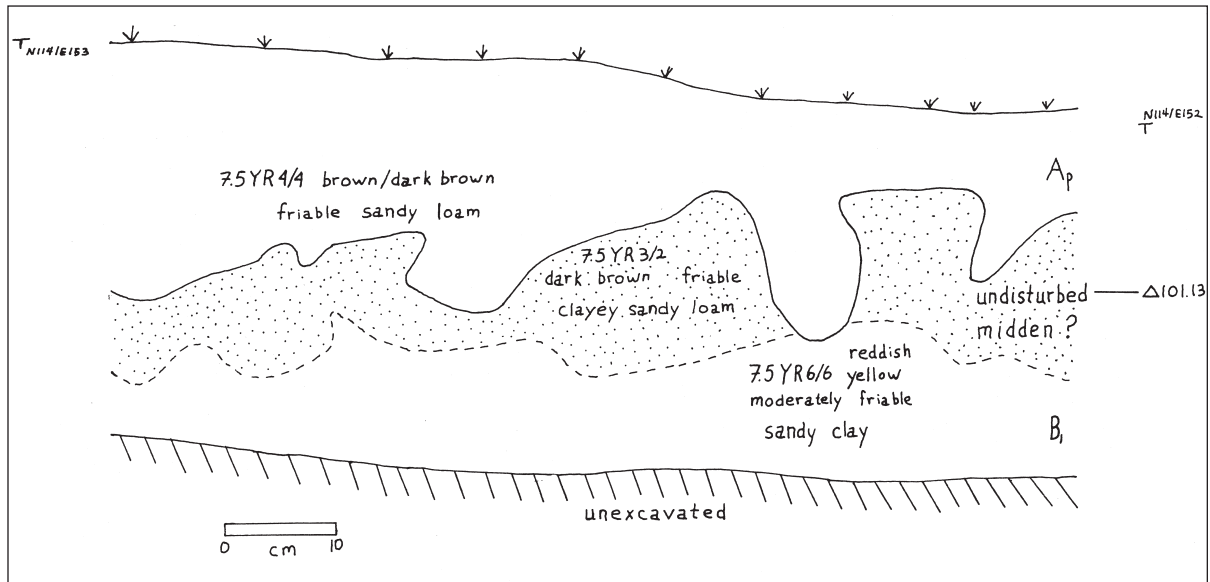 T N114/E153
N114/E152
T
Ap
7.5YR 4/4 brown/dark brown
friable sandy loam
7.5YR 3/2
dark brown friable
clayey sandy loam
undisturbed
midden?
Δ101.13
reddish
7.5YR6/6 yellow
moderately friable
sandy clay
B1
unexcavated
0 cm 10